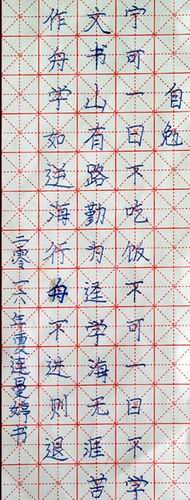 自勉
宁可一日不吃饭不可一日不学
文书山有路勤为迳学海无涯苦
作舟学如逆海行舟不进则退
二零一六年夏连曼婷书